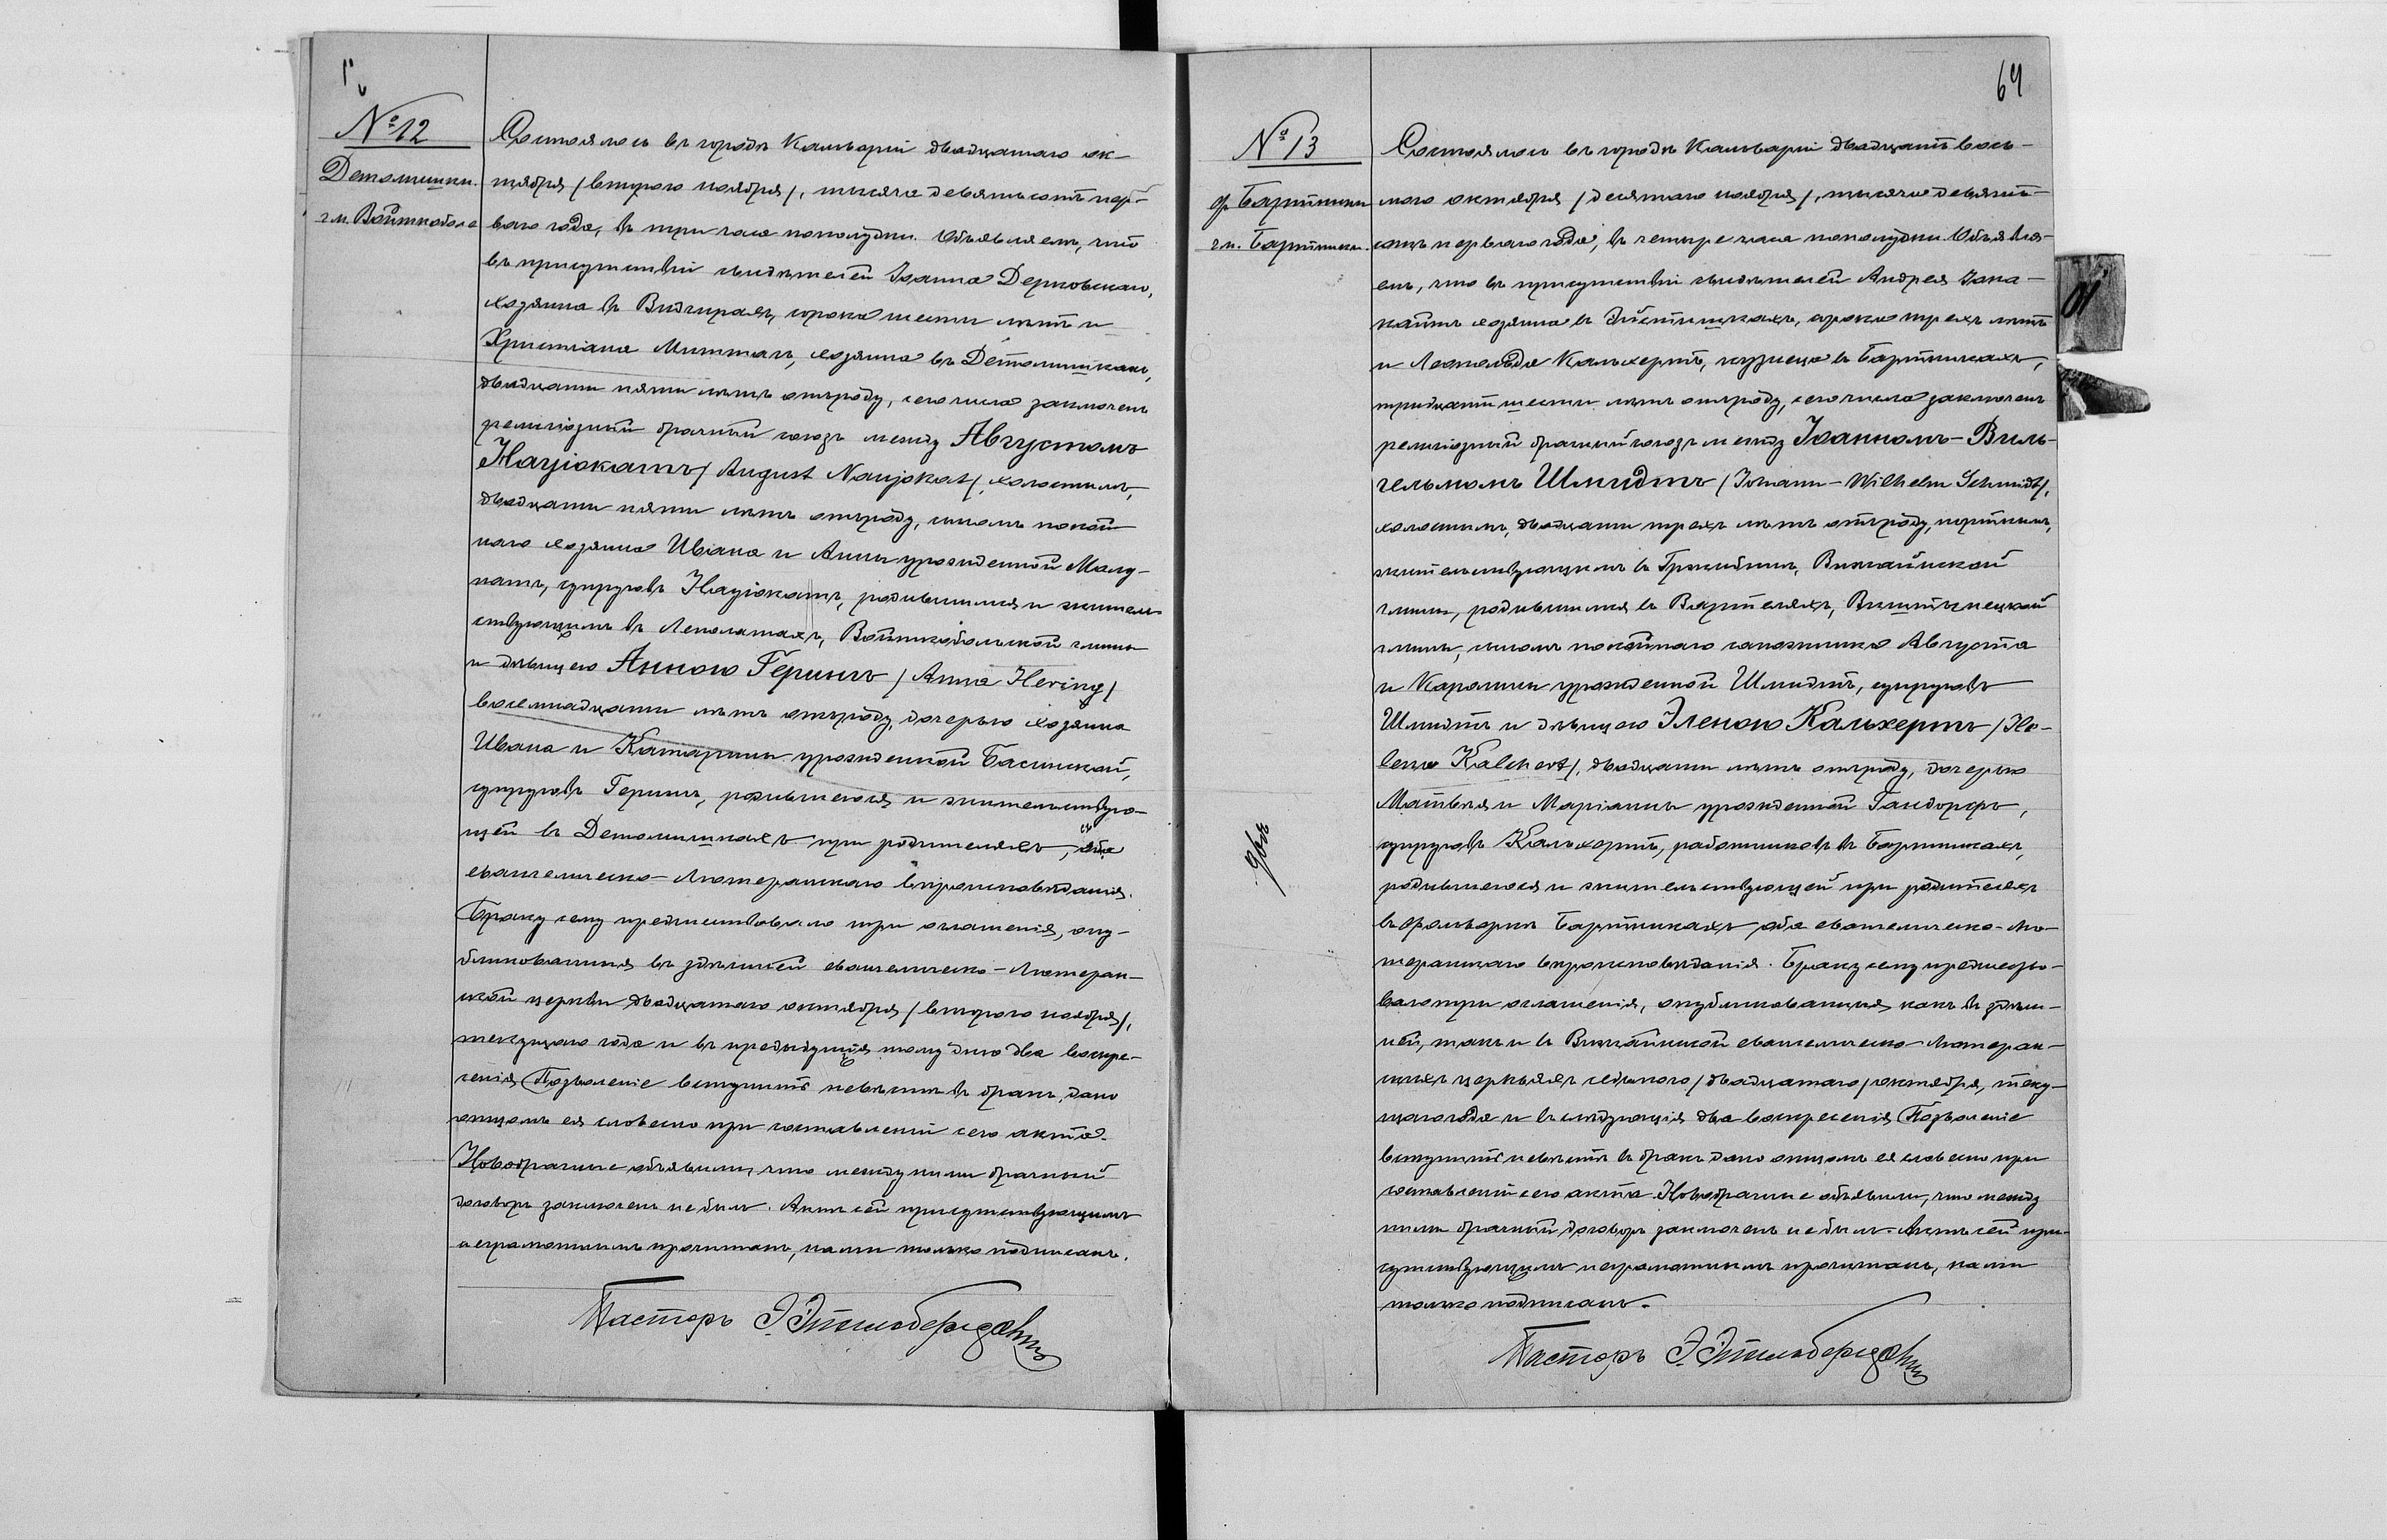 № 12
Детомишки.
гм. Войткобола
Состоялось въ городѣ Кальваріи двадцатаго ок-
тября /второго ноября/, тысяча девятьсотъ пер-
ваго года, въ три часа пополудни. Объявляемъ, что
въ присутствіи свидѣтелей Іоанна Дерновскаго,
хозяина въ Видгиряхъ, сорока шести лѣтъ и
Христіана Миттагъ, хозяина въ Детомишкахъ,
двадцати пяти лѣтъ отъ роду, сего числа заключенъ
религіозный брачный союзъ между Августомъ
Науіокатъ /August Naujokat/, холостымъ,
двадцати пяти лѣтъ отъ роду, сыномъ покой-
наго хозяина Ивана и Анны урожденной Малу-
натъ, супруговъ Науіокатъ, родившимся и житель-
ствующимъ въ Леполатахъ, Войткобольской гмины
и дѣвицею Анною Герингъ /Anna Hering/
восемнадцати лѣтъ отъ роду, дочерью хозяина
Ивана и Катарины урожденной Басинской,
супруговъ Герингъ, родившеюся и жительствую-
щей въ Детомишкахъ при родителяхъ, оба
евангелическо-Лютеранскаго вѣроисповѣданія.
Браку сему предшествовало три оглашенія, опу-
бликованныя въ здѣшней евангелическо-Лютеран-
ской церкви двадцатаго октября /второго ноября/,
текущаго года и въ предыдущія тому дню два воскре-
сенія Позволеніе вступить невѣстѣ въ бракъ, дано
отцомъ ея словесно при составленіи сего акта.
Новобрачные объявили, что между ними брачный
договоръ заключенъ не былъ. Актъ сей присутствующимъ
неграмотнымъ прочитанъ, нами только подписанъ.
Пасторъ Э. Эттельбергдовъ
64
№ 13
ф. Бартники
гм. Бартники.
Состоялось въ городѣ Кальваріи двадцать вось-
мого октября /десятаго ноября/, тысяча девять-
сотъ перваго года, въ четыре часа пополудни. Объявля-
емъ, что въ присутствіи свидѣтелей Андрея Јона-
кайтъ хозяина въ сорока трехъ лѣтъ
и Леопольда Кальхертъ, кузнеца въ Бартникахъ,
тридцати шести лѣтъ отъ роду, сего числа заключенъ
религіозный брачный союзъ между Іоанномъ-Виль-
гельмомъ Шмидтъ /Johann-Wilhelm Schmidt/,
холостымъ, двадцати трехъ лѣтъ отъ роду, портнымъ,
жительствующимъ въ Вижайнской
гмины, родившимся въ Вартеляхъ, Виштынецкой
гмины, сыномъ покойнаго сапожника Августа
и Каролины урожденной Шмидтъ, супруговъ
Шмидтъ и дѣвицею Эленою Кальхертъ /He-
lene Kalchert/, двадцати лѣтъ отъ роду, дочерью
Матвѣя и Маріанны урожденной Гандорфъ,
супруговъ Кальхертъ, работниковъ въ Бартникахъ,
родившеюся и жительствующей при родителяхъ
въ фольваркѣ Бартникахъ оба евангелическо-Лю-
теранскаго вѣроисповѣданія. Браку сему предшество-
вало три оглашенія, опубликованныя какъ въ здѣш-
ней, такъ и въ Вижайнской евангелическо-Лютеран-
скихъ церквяхъ седьмого /двадцатаго/ октября, теку-
щаго года и въ слѣдующія два воскресенія Позволеніе
вступить невѣстѣ въ бракъ дано отцомъ ея словесно при
составленіи сего акта. Новобрачные объявили, что между
ними брачный договоръ заключенъ не былъ. Актъ сей при-
сутствующимъ неграмотнымъ прочитанъ, нами
только подписанъ.
Пасторъ Э. Эттельбергдовъ